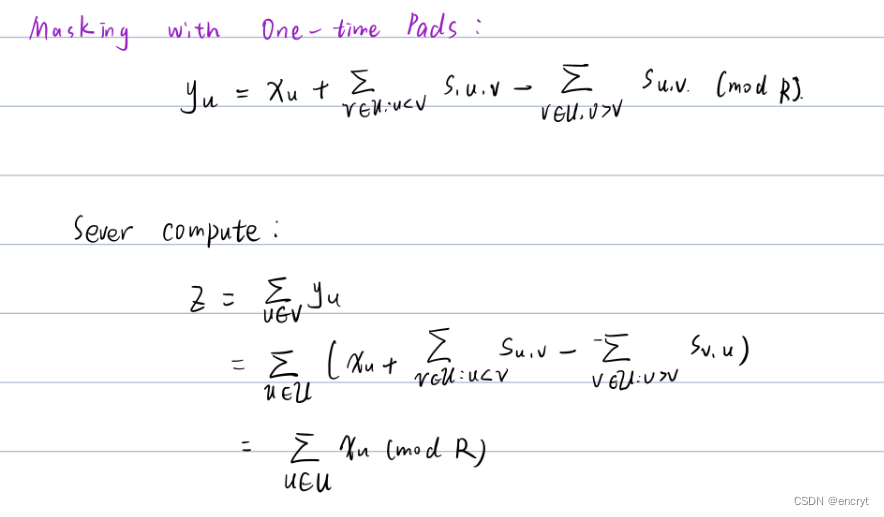 Masking with One-time Pads:
y_u = x_u + Σ_{v∈𝒰:u<v} s.u.v − Σ_{v∈𝒰,υ>v} s_{u.v.} (mod R).
Sever compute:
z = Σ_{u∈v} y_u
= Σ_{u∈𝒰} (x_u + Σ_{v∈𝒰:u<v} s_{u.v} − Σ_{v∈𝒰:υ>v} s_{v,u})
= Σ_{u∈u} x_u (mod R)
CSDN @encryt